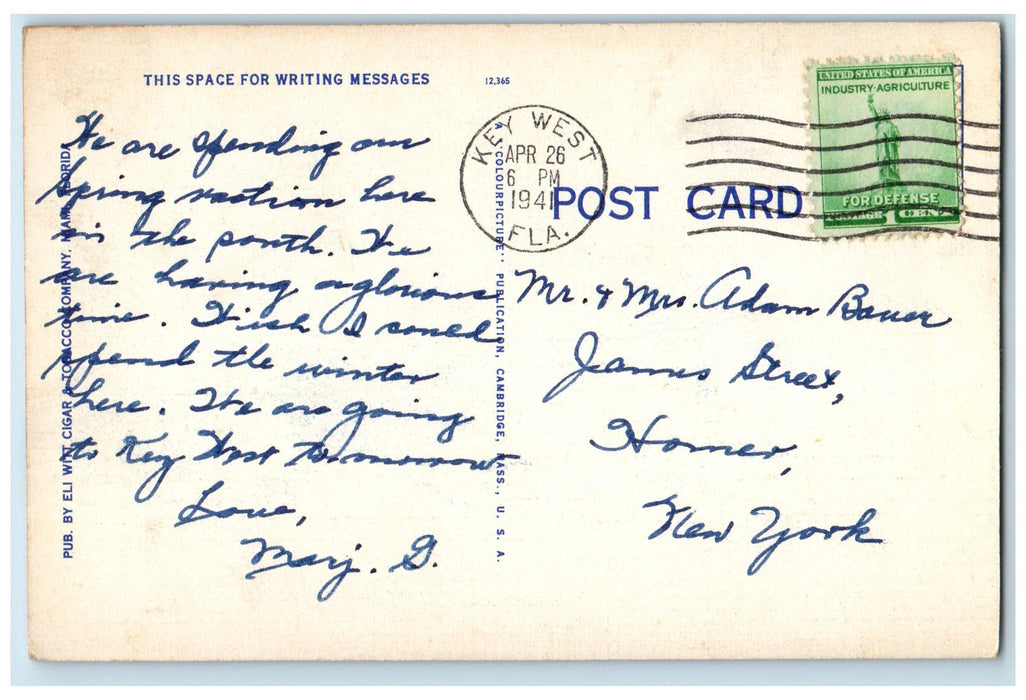 THIS SPACE FOR WRITING MESSAGES
12,365
We are spending our
spring vaction here
in the south. We
are having a glorious
time. Wish I could
spend the winter
here. We are going
to Key West tomorrow
Love,
Marj. G.
PUB. BY ELI WITT CIGAR & TOBACCO COMPANY, MIAMI, FLORIDA
"COLOURPICTURE" PUBLICATION, CAMBRIDGE, MASS., U. S. A.
KEY WEST
APR 26
6 PM
1941
FLA.
POST CARD
UNITED STATES OF AMERICA
INDUSTRY·AGRICULTURE
FOR DEFENSE
POSTAGE 1 CENT
Mr. & Mrs. Adam Bauer
James Street,
Homer,
New York